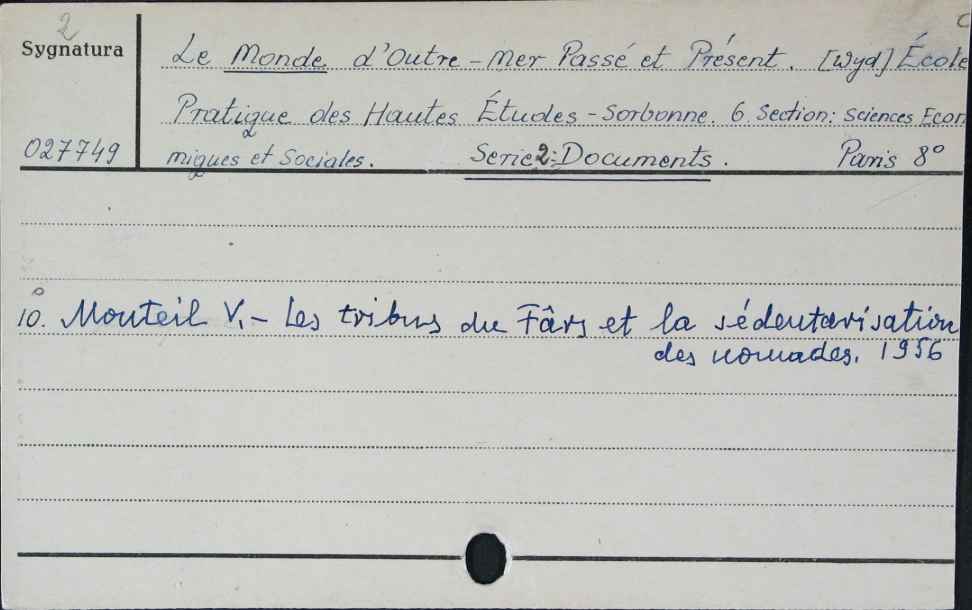 2
Sygnatura
Le Monde d'Outre-Mer Passé et Présent. [Wyd] École
Pratique des Hautes Études - Sorbonne. 6 Section: Sciences Econ
027749
miques et Sociales. Serie 2: Documents. Paris 8°
10. Monteil V. - Les tribus du Fârs et la sédentarisation
des nomades. 1956